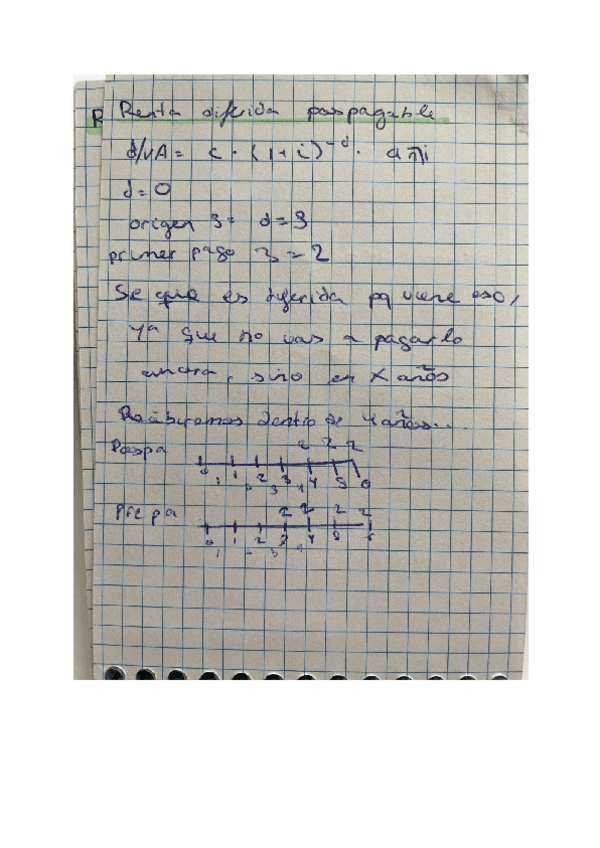 R
Renta diferida pospagable
d/VA = c · (1+i)^-d · a n̅ i
d=0
origen 3 = d=3
primer pago 3 = 2
Se que es diferida pq viene eso,
ya que no vas a pagarlo
ahora, sino en X años
Recibiremos dentro de 4 años...
Pospa
c 2 2
0 1 2 3 4 5 6
1 2 3 4
Prepa
c c 2 2
0 1 2 3 4 5 6
1 2 3 4